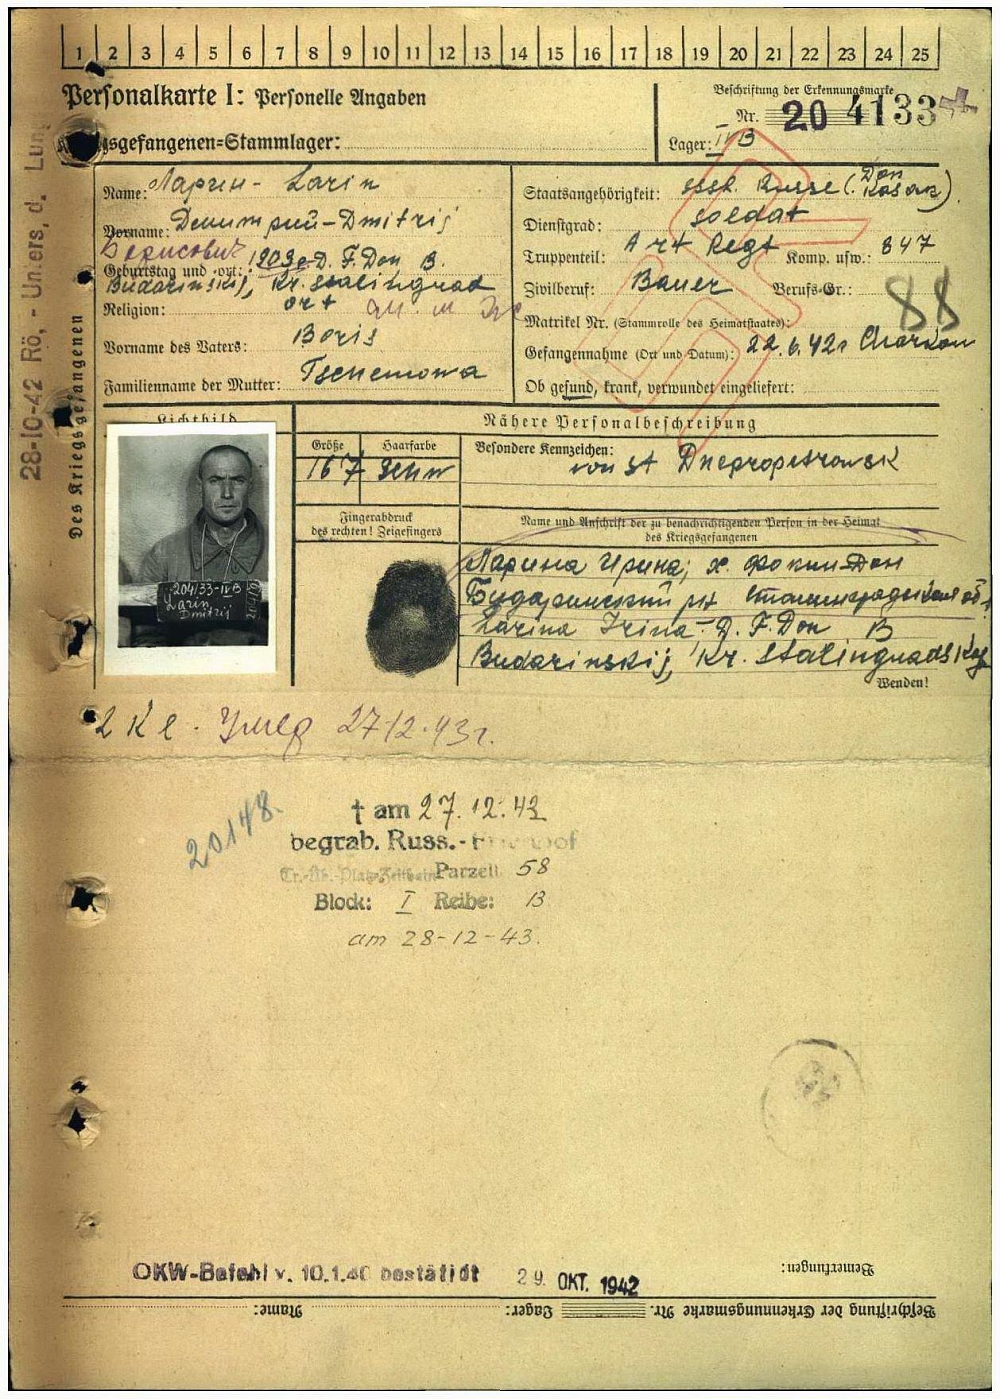 1 2 3 4 5 6 7 8 9 10 11 12 13 14 15 16 17 18 19 20 21 22 23 24 25
Personalkarte I: Personelle Angaben
Beschriftung der Erkennungsmarke
Nr. 204133
gsgefangenen-Stammlager:
Lager: IVB
28-10-42 Rö,- Unters, d.
Des Kriegsgefangenen
Name: Ларин - Larin
Vorname: Димитрий-Dmitrij
Борисович
Geburtstag und -ort: 1903 D. F. Don B.
Budarinskij, Kr. Stalingrad
Religion: ort
Vorname des Vaters: Boris
Familienname der Mutter:
Staatsangehörigkeit: Russe (Don Kosak)
Dienstgrad: Soldat
Truppenteil: Art Regt Komp. usw.: 847
Zivilberuf: Bauer Berufs-Gr.:
88
Matrikel Nr. (Stammrolle des Heimatstaates):
Gefangennahme (Ort und Datum): 22.6.42 Charkow
Ob gesund, krank, verwundet eingeliefert:
Lichtbild
Nähere Personalbeschreibung
Größe Haarfarbe
167 Schw
Besondere Kennzeichen:
von St Dnepropetrowsk
Fingerabdruck
des rechten! Zeigefingers
Name und Anschrift der zu benachrichtigenden Person in der Heimat
des Kriegsgefangenen
204133-IVB
Larin
Dmitrij
Ларина Ирина, х. Фокин Дон
Бударинский рн Сталинградская об.
Larina Irina - D. F. Don B
Budarinskij, Kr. Stalingrads
Wenden!
Умер 27/12.43г.
20148.
† am 27.12.43
begrab. Russ.-Friedhof
Tr.-Üb.-Platz Zeithain Parzell 58
Block: I Reihe: 13
am 28-12-43.
OKW-Befehl v. 10.1.40 bestätigt 29. OKT. 1942
Bemerkungen:
Beschriftung der Erkennungsmarke Nr. Lager: Name: